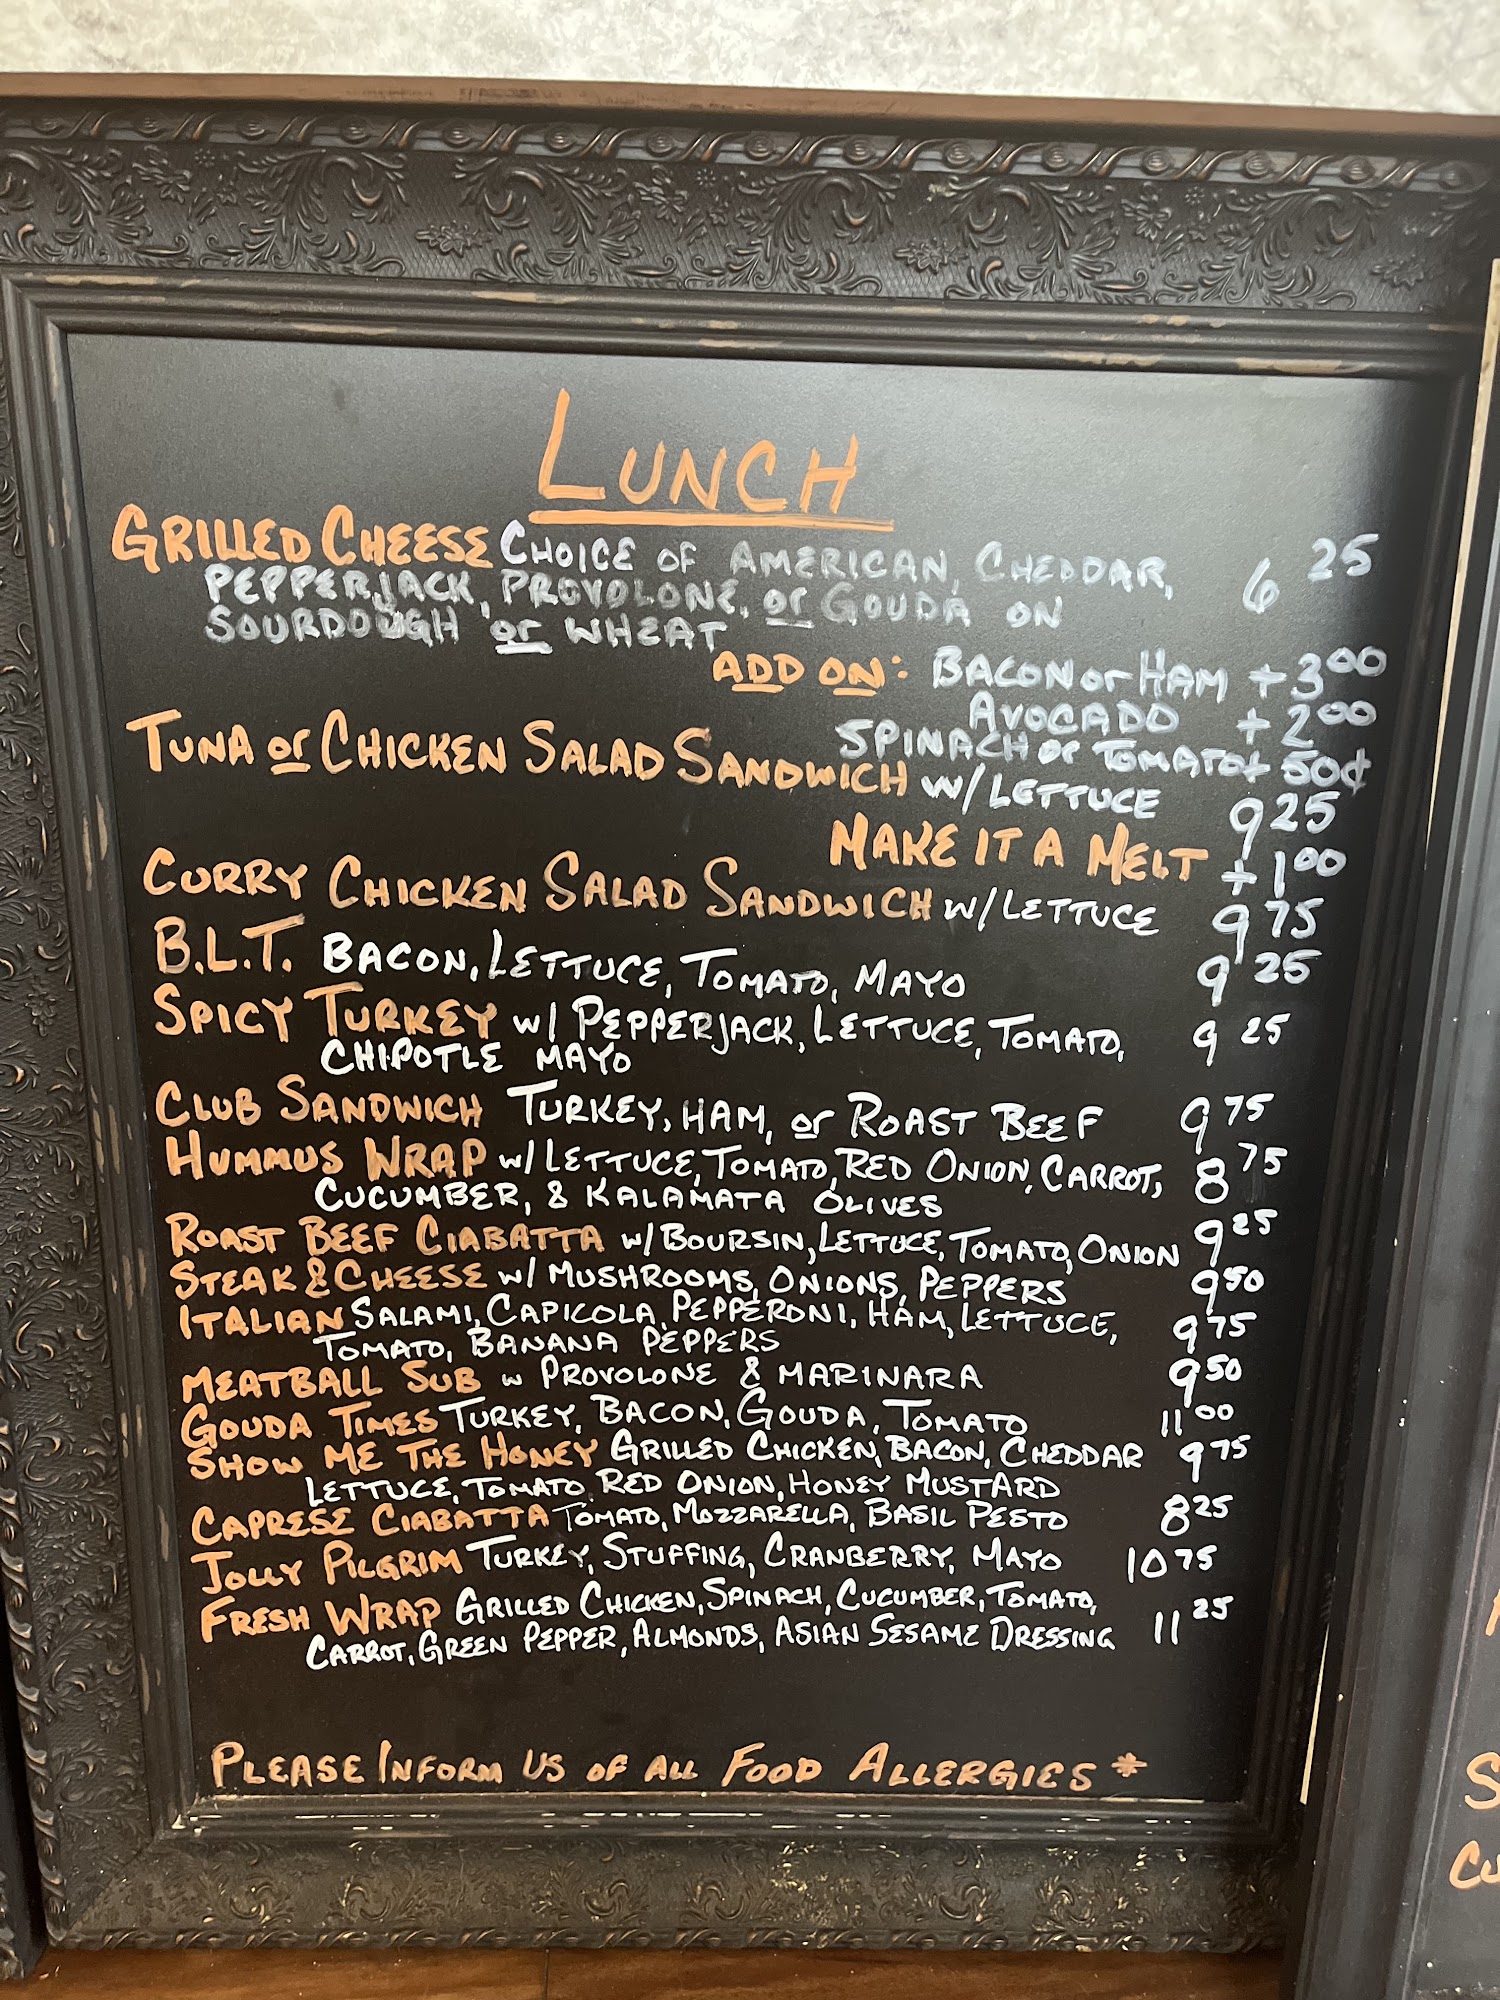 LUNCH
GRILLED CHEESE CHOICE OF AMERICAN, CHEDDAR, 6 25
PEPPERJACK, PROVOLONE, or GOUDA ON
SOURDOUGH or WHEAT
ADD ON: BACON or HAM + 3 00
AVOCADO + 2 00
SPINACH or TOMATO + 50¢
TUNA or CHICKEN SALAD SANDWICH w/ LETTUCE 9 25
MAKE IT A MELT + 1 00
CURRY CHICKEN SALAD SANDWICH w/ LETTUCE 9 75
B.L.T. BACON, LETTUCE, TOMATO, MAYO 9 25
SPICY TURKEY w/ PEPPERJACK, LETTUCE, TOMATO, 9 25
CHIPOTLE MAYO
CLUB SANDWICH TURKEY, HAM, or ROAST BEEF 9 75
HUMMUS WRAP w/ LETTUCE, TOMATO, RED ONION, CARROT, 8 75
CUCUMBER, & KALAMATA OLIVES
ROAST BEEF CIABATTA w/ BOURSIN, LETTUCE, TOMATO, ONION 9 25
STEAK & CHEESE w/ MUSHROOMS, ONIONS, PEPPERS 9 50
ITALIAN SALAMI, CAPICOLA, PEPPERONI, HAM, LETTUCE, 9 75
TOMATO, BANANA PEPPERS
MEATBALL SUB w PROVOLONE & MARINARA 9 50
GOUDA TIMES TURKEY, BACON, GOUDA, TOMATO 11 00
SHOW ME THE HONEY GRILLED CHICKEN, BACON, CHEDDAR 9 75
LETTUCE, TOMATO, RED ONION, HONEY MUSTARD
CAPRESE CIABATTA TOMATO, MOZZARELLA, BASIL PESTO 8 25
JOLLY PILGRIM TURKEY, STUFFING, CRANBERRY, MAYO 10 75
FRESH WRAP GRILLED CHICKEN, SPINACH, CUCUMBER, TOMATO, 11 25
CARROT, GREEN PEPPER, ALMONDS, ASIAN SESAME DRESSING
PLEASE INFORM US OF ALL FOOD ALLERGIES *